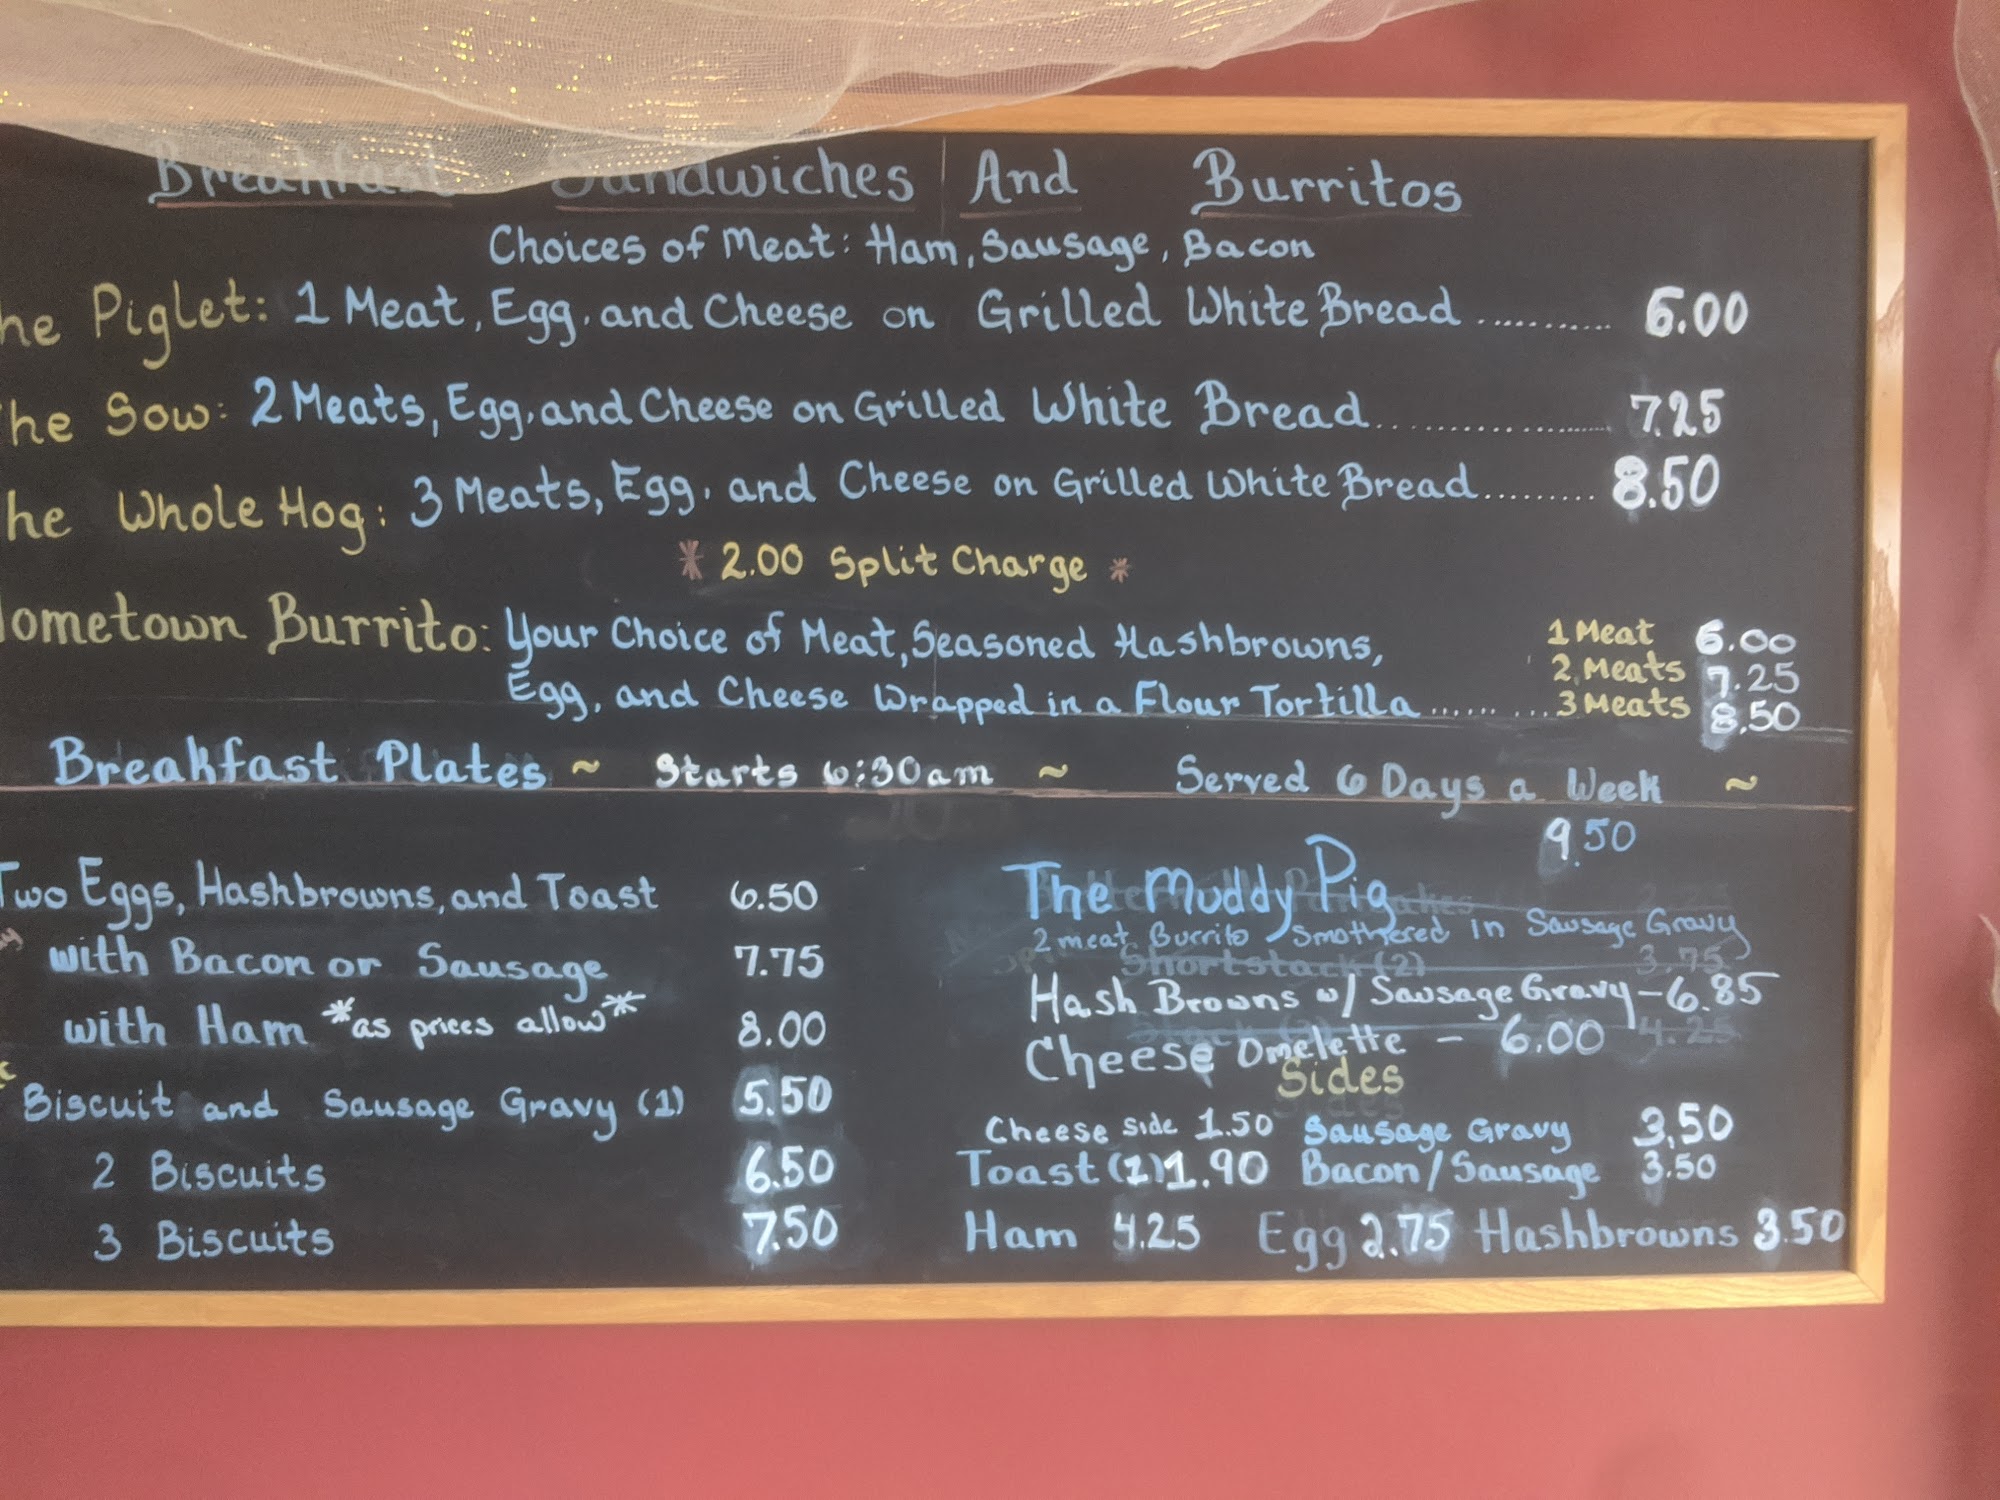 Breakfast Sandwiches And Burritos
Choices of Meat: Ham, Sausage, Bacon
he Piglet: 1 Meat, Egg, and Cheese on Grilled White Bread ........... 6.00
he Sow: 2 Meats, Egg, and Cheese on Grilled White Bread ................ 7.25
he Whole Hog: 3 Meats, Egg, and Cheese on Grilled White Bread ......... 8.50
* 2.00 Split Charge *
ometown Burrito: Your Choice of Meat, Seasoned Hashbrowns,
Egg, and Cheese Wrapped in a Flour Tortilla .........
1 Meat 6.00
2 Meats 7.25
3 Meats 8.50
Breakfast Plates ~ Starts 6:30am ~ Served 6 Days a Week ~
Two Eggs, Hashbrowns, and Toast 6.50
with Bacon or Sausage 7.75
with Ham *as prices allow* 8.00
Biscuit and Sausage Gravy (1) 5.50
2 Biscuits 6.50
3 Biscuits 7.50
9.50
The Muddy Pig
2 meat Burrito Smothered in Sausage Gravy
Hash Browns w/ Sausage Gravy - 6.85
Cheese Omelette - 6.00
Sides
Cheese side 1.50 Sausage Gravy 3.50
Toast (2) 1.90 Bacon/Sausage 3.50
Ham 4.25 Egg 2.75 Hashbrowns 3.50